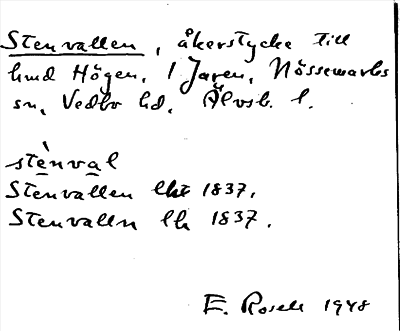 Stenvallen, åkerstycke till
hmd Högen, 1 Jaren, Nössemarks
sn, Vedbo hd, Älvsb. l.
stènval
Stenvallen lht 1837.
Stenvalln lh 1837.
E. Rosell 1948